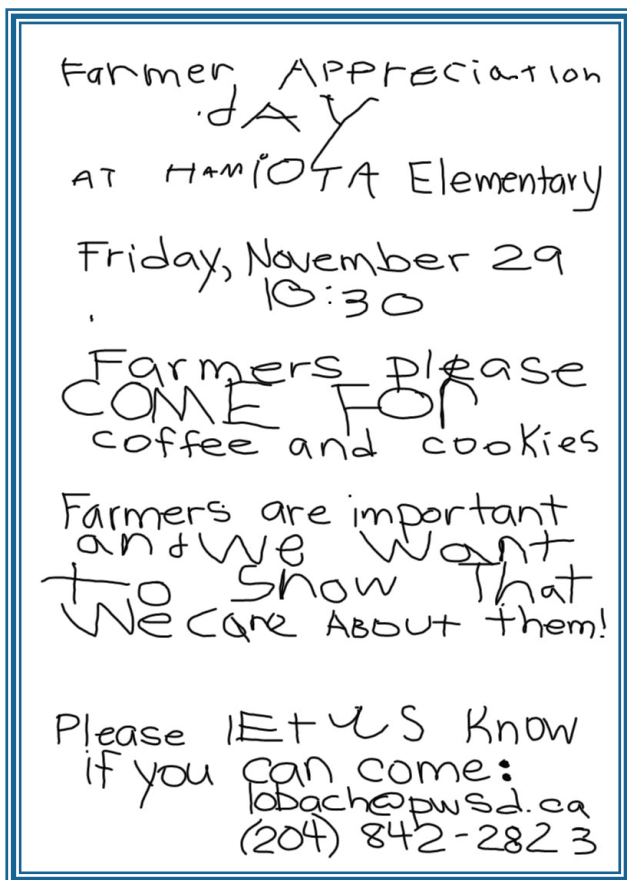 Farmer Appreciation
dAY
AT HAMiOTA Elementary
Friday, November 29
10:30
Farmers please
COME FOR
coffee and cookies
Farmers are important
and we want
to show That
We care ABOUT them!
Please lEt US Know
if you can come:
lobach@pwsd.ca
(204) 842-2823